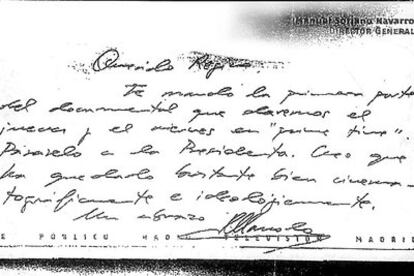 Manuel Soriano Navarro
DIRECTOR GENERAL
Querido Regino.
Te mando la primera parte
del documental que daremos el
jueves y el viernes en "prime time".
Pásaselo a la Presidenta. Creo que
ha quedado bastante bien cinema-
tográficamente e ideológicamente.
Un abrazo Manolo
E PÚBLICO RADIO TELEVISIÓN MADRID